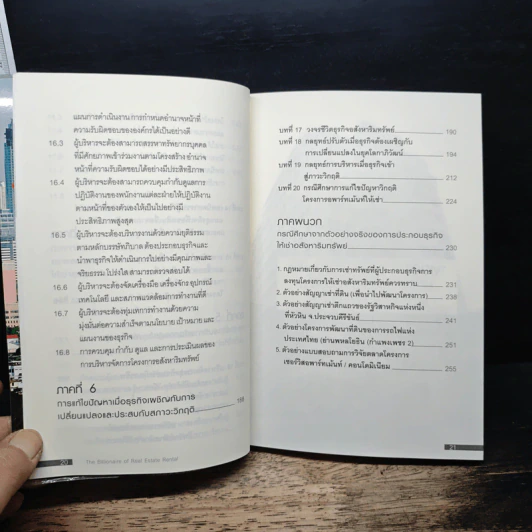 แผนการดำเนินงาน การกำหนดอำนาจหน้าที่
ความรับผิดชอบขององค์กรได้เป็นอย่างดี
16.3 ผู้บริหารจะต้องสามารถสรรหาทรัพยากรบุคคล
ที่มีศักยภาพเข้าร่วมงานตามโครงสร้าง อำนาจ
หน้าที่ความรับผิดชอบได้อย่างมีประสิทธิภาพ
16.4 ผู้บริหารจะต้องสามารถควบคุมกำกับดูแลการ
ปฏิบัติงานของพนักงานแต่ละฝ่ายให้ปฏิบัติงาน
ตามหน้าที่ของตัวเองให้เป็นไปอย่างมี
ประสิทธิภาพสูงสุด
16.5 ผู้บริหารจะต้องบริหารงานด้วยความยุติธรรม
ตามหลักบรรษัทภิบาล ต้องประกอบธุรกิจและ
นำพาธุรกิจให้ดำเนินการไปอย่างมีคุณภาพและ
จริยธรรม โปร่งใส สามารถตรวจสอบได้
16.6 ผู้บริหารจะต้องจัดเครื่องมือ เครื่องจักร อุปกรณ์
เทคโนโลยี และสภาพแวดล้อมการทำงานที่ดี
16.7 ผู้บริหารจะต้องทุ่มเทการทำงานด้วยความ
มุ่งมั่นต่อความสำเร็จตามนโยบาย เป้าหมาย และ
แผนงานของธุรกิจ
16.8 การควบคุม กำกับ ดูแล และการประเมินผลของ
การบริหารจัดการโครงการอสังหาริมทรัพย์
ภาคที่ 6
การแก้ไขปัญหาเมื่อธุรกิจเผชิญกับการ
เปลี่ยนแปลงและประสบกับสภาวะวิกฤติ
20 The Billionaire of Real Estate Rental
บทที่ 17 วงจรชีวิตธุรกิจอสังหาริมทรัพย์ 190
บทที่ 18 กลยุทธ์ปรับตัวเมื่อธุรกิจต้องเผชิญกับ
การเปลี่ยนแปลงในยุคโลกาภิวัตน์ 194
บทที่ 19 กลยุทธ์การบริหารเมื่อธุรกิจเข้า
สู่ภาวะวิกฤติ 212
บทที่ 20 กรณีศึกษาการแก้ไขปัญหาวิกฤติ
โครงการอพาร์ทเม้นท์ให้เช่า 224
ภาคผนวก
กรณีศึกษาจากตัวอย่างจริงของการประกอบธุรกิจ
ให้เช่าอสังหาริมทรัพย์ 230
1. กฎหมายเกี่ยวกับการเช่าทรัพย์ที่ผู้ประกอบธุรกิจการ
ลงทุนโครงการให้เช่าอสังหาริมทรัพย์ควรทราบ 231
2. ตัวอย่างสัญญาเช่าที่ดิน (เพื่อนำไปพัฒนาโครงการ) 238
3. ตัวอย่างสัญญาเช่าตึกแถวของรัฐวิสาหกิจแห่งหนึ่ง
ที่หัวหิน จ.ประจวบคีรีขันธ์ 241
4. ตัวอย่างโครงการพัฒนาที่ดินของการรถไฟแห่ง
ประเทศไทย (ย่านพหลโยธิน (กำแพงเพชร 2) 251
5. ตัวอย่างแบบสอบถามการวิจัยตลาดโครงการ
เซอร์วิสอพาร์ทเม้นท์ / คอนโดมิเนียม 255
21